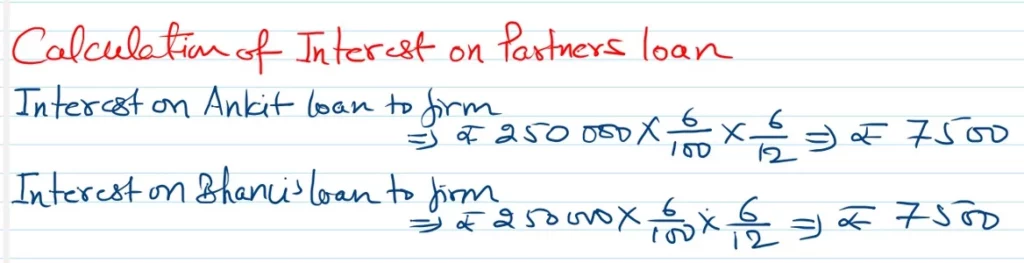 Calculation of Interest on Partners loan
Interest on Ankit loan to firm
⇒ ₹ 250 000 X 6/100 X 6/12 ⇒ ₹ 7500
Interest on Bhanu's loan to firm
⇒ ₹ 250000 X 6/100 X 6/12 ⇒ ₹ 7500